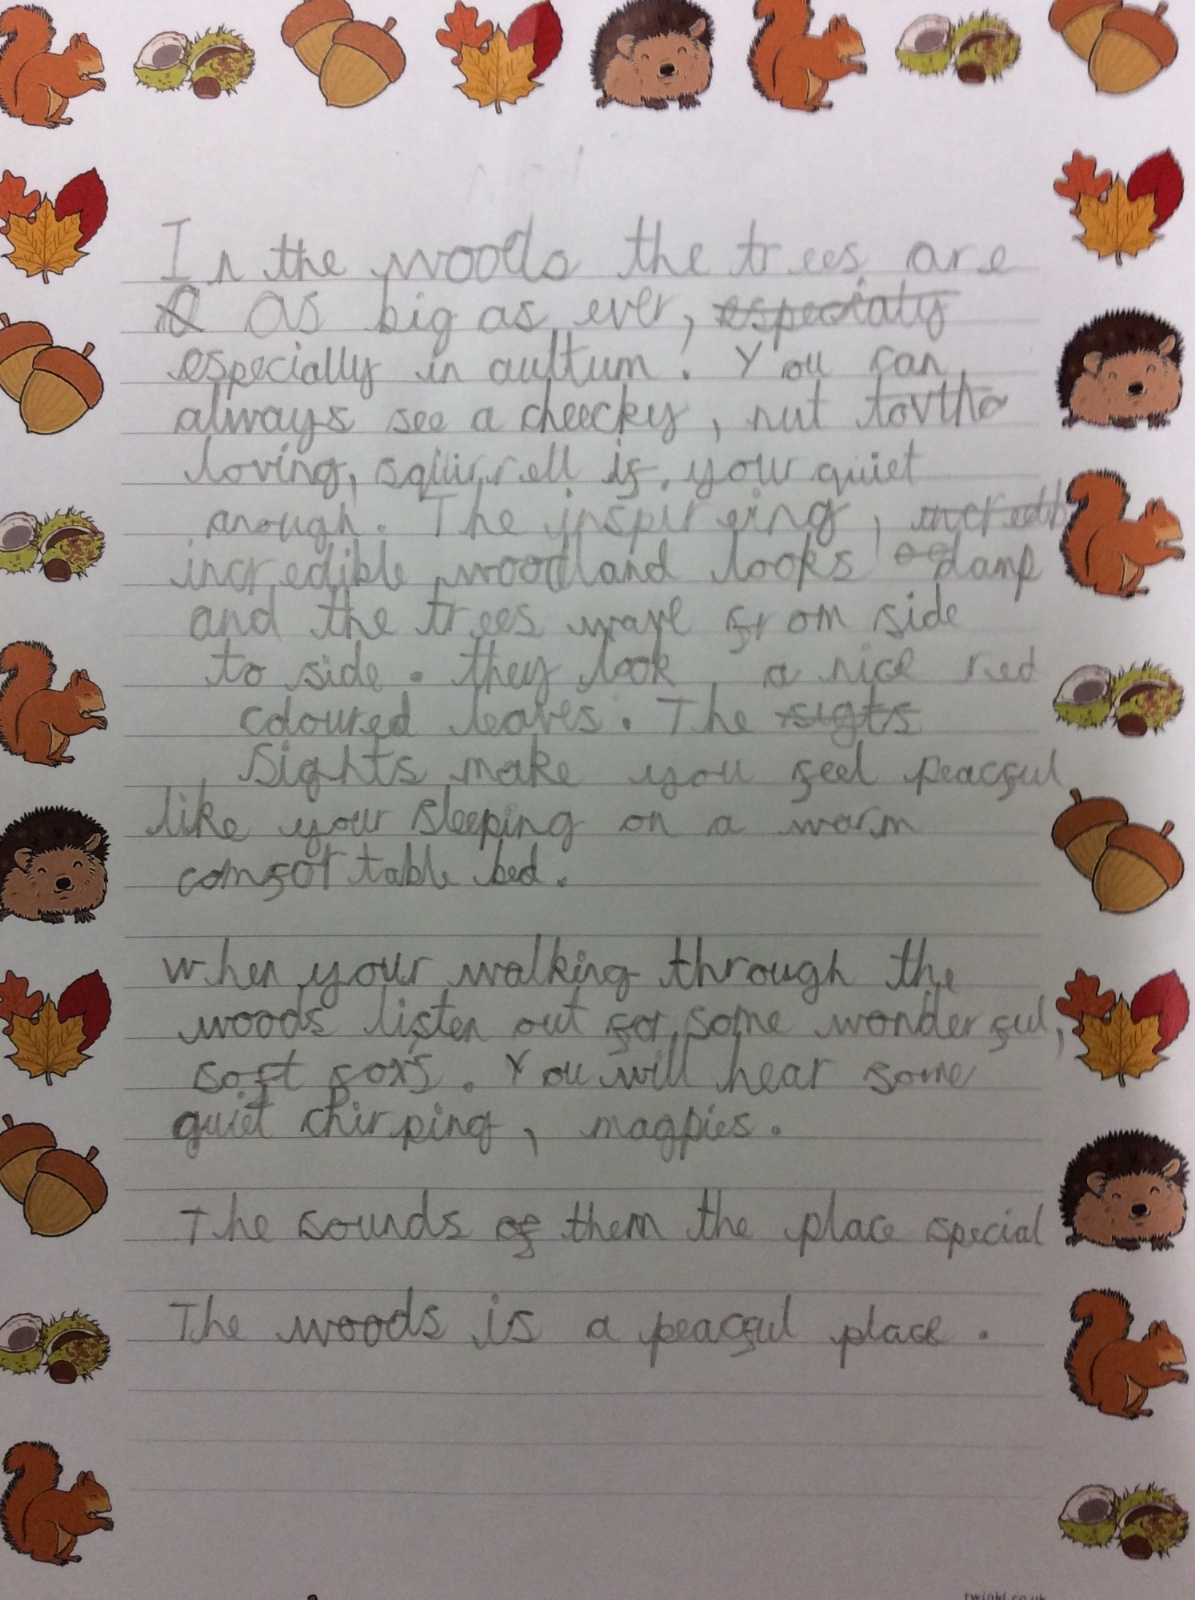 In the woods the trees are
as big as ever, especialy
especially in aultum. You can
always see a cheecky, nut
loving, sqiurrell if your quiet
anough. The inspireing, incredib
incredible woodland looks damp
and the trees wave from side
to side. they look a nice red
coloured leaves. The sigts
Sights make you feel peacful
like your sleeping on a warm
comfortable bed.
When your walking through the
woods listen out for some wonderful,
soft foxs. You will hear some
quiet chirping, magpies.
The sounds of them the place special
The woods is a peacful place.
twinkl.co.uk